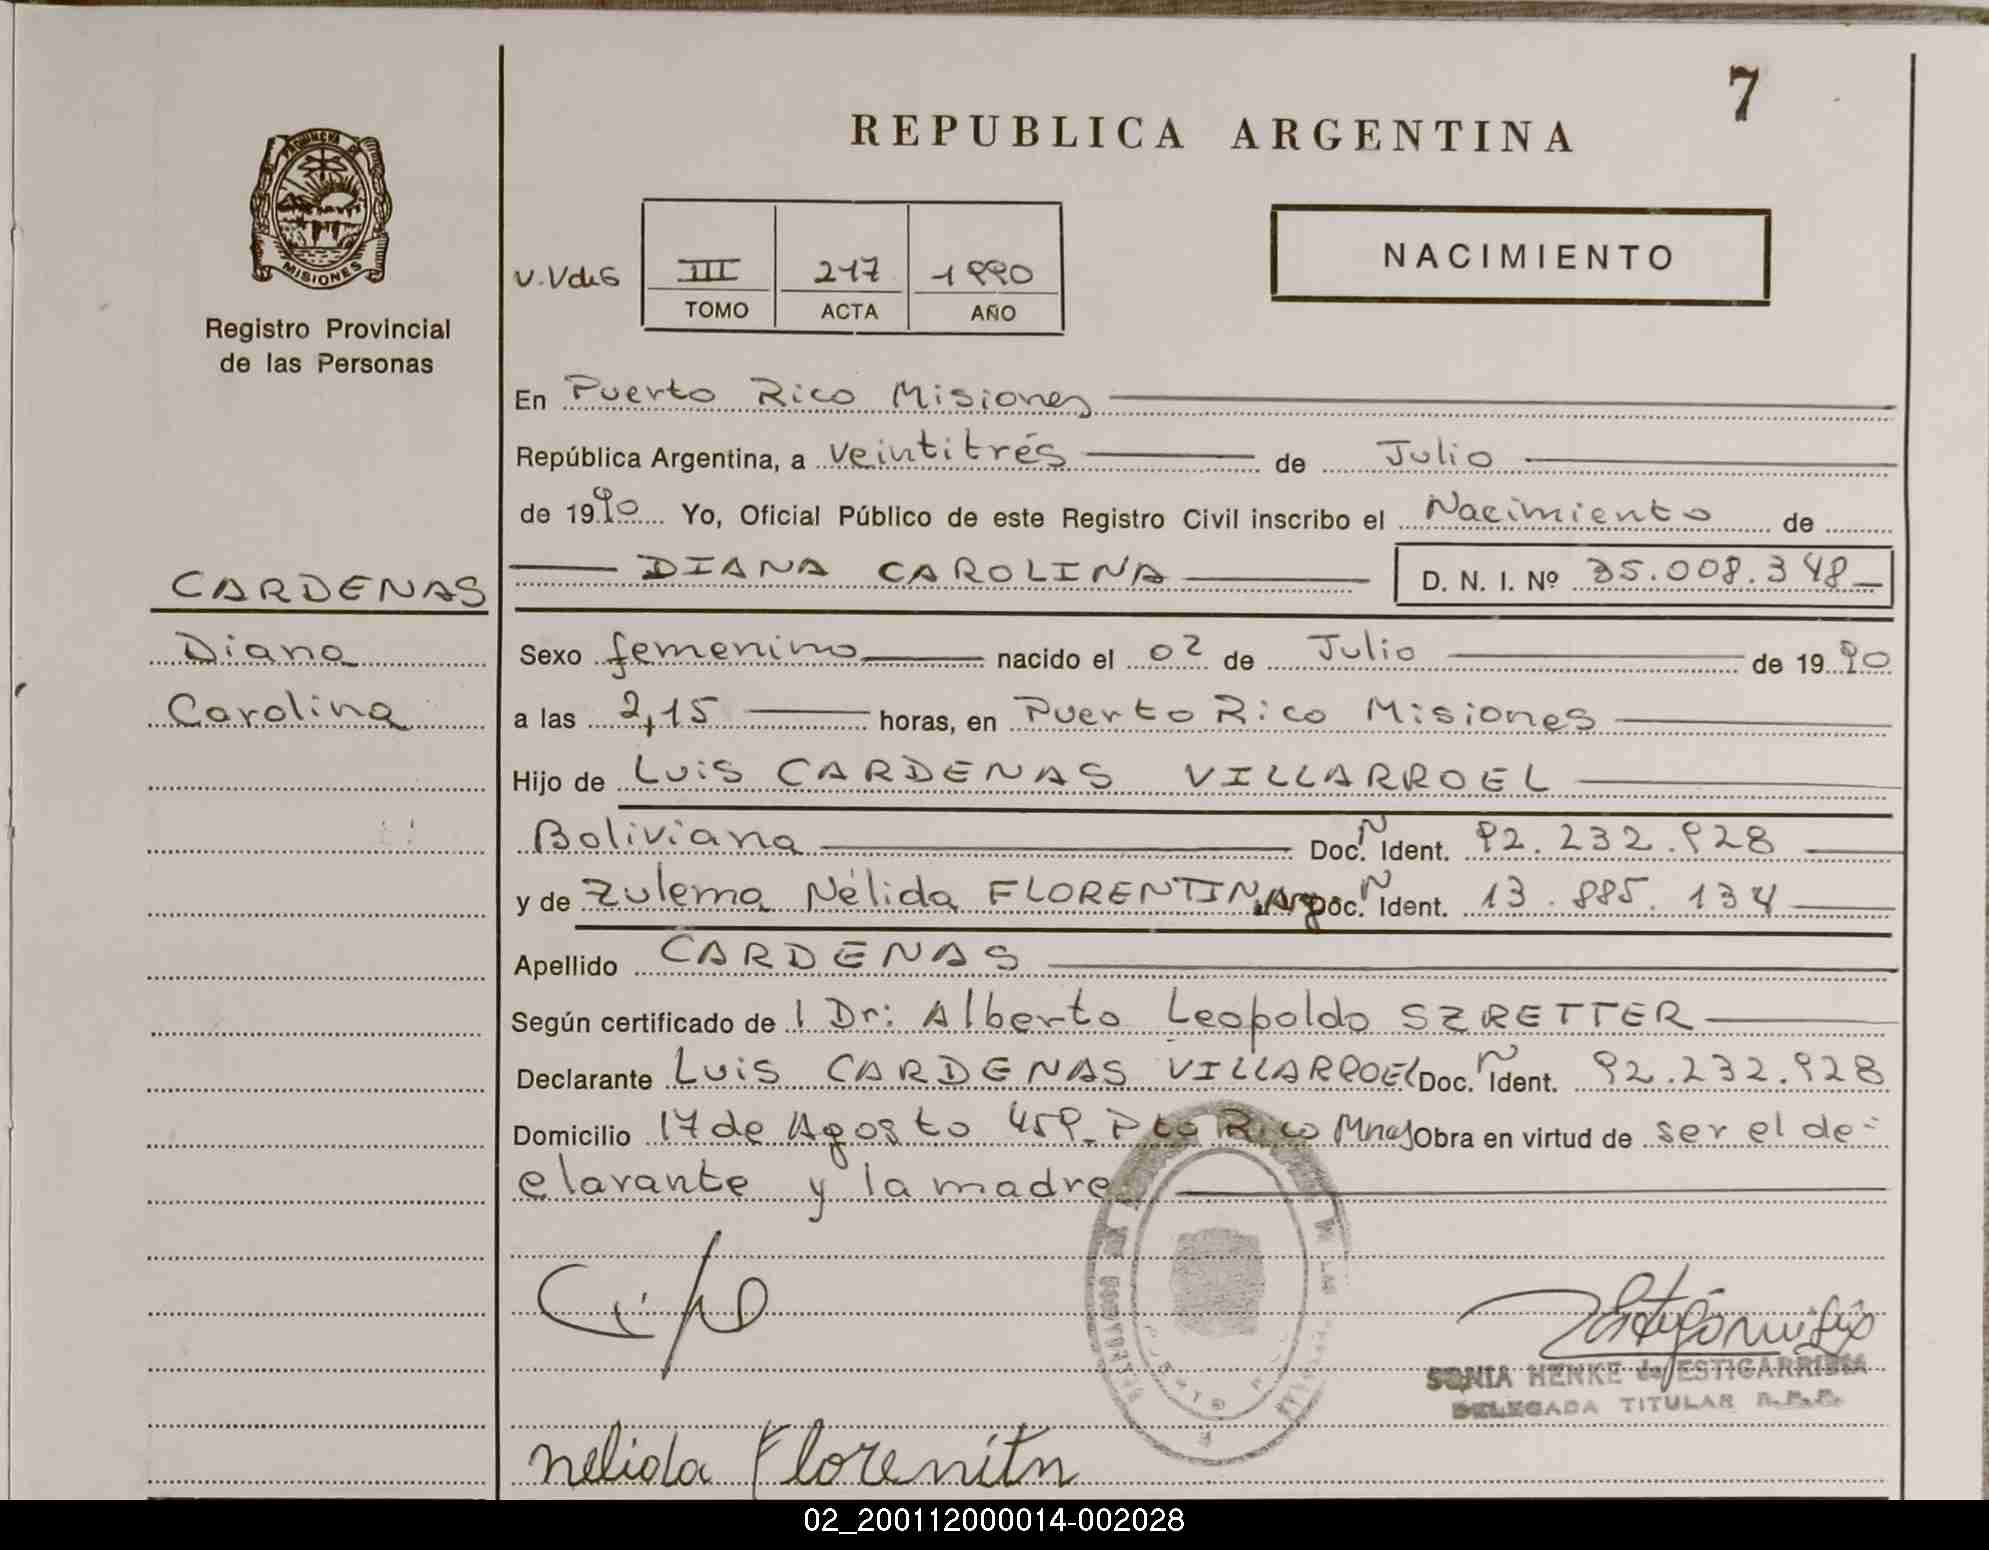 7
REPUBLICA ARGENTINA
PROVINCIA DE
MISIONES
Registro Provincial
de las Personas
NACIMIENTO
III 217 1990
TOMO ACTA AÑO
En Puerto Rico Misiones
República Argentina, a veintitrés de Julio
de 1990 Yo, Oficial Público de este Registro Civil inscribo el Nacimiento de
DIANA CAROLINA D. N. I. Nº 35.008.348
CARDENAS
Diana
Carolina
Sexo femenino nacido el 02 de Julio de 1990
a las 2,15 horas, en Puerto Rico Misiones
Hijo de Luis CARDENAS VILLARROEL
Boliviana Doc. Ñ Ident. 92.232.928
y de Zulema Nélida FLORENTIN. Arg Doc. Ñ Ident. 13.885.134
Apellido CARDENAS
Según certificado de l Dr: Alberto Leopoldo SZRETTER
Declarante Luis CARDENAS VILLARROEL Doc. Ñ Ident. 92.232.928
Domicilio 17 de Agosto 459. Pto Rico Mnes Obra en virtud de ser el de-
clarante y la madre
SONIA HENKE de ESTIGARRIBIA
DELEGADA TITULAR R.P.P.
nelida Florenitn
02_200112000014-002028